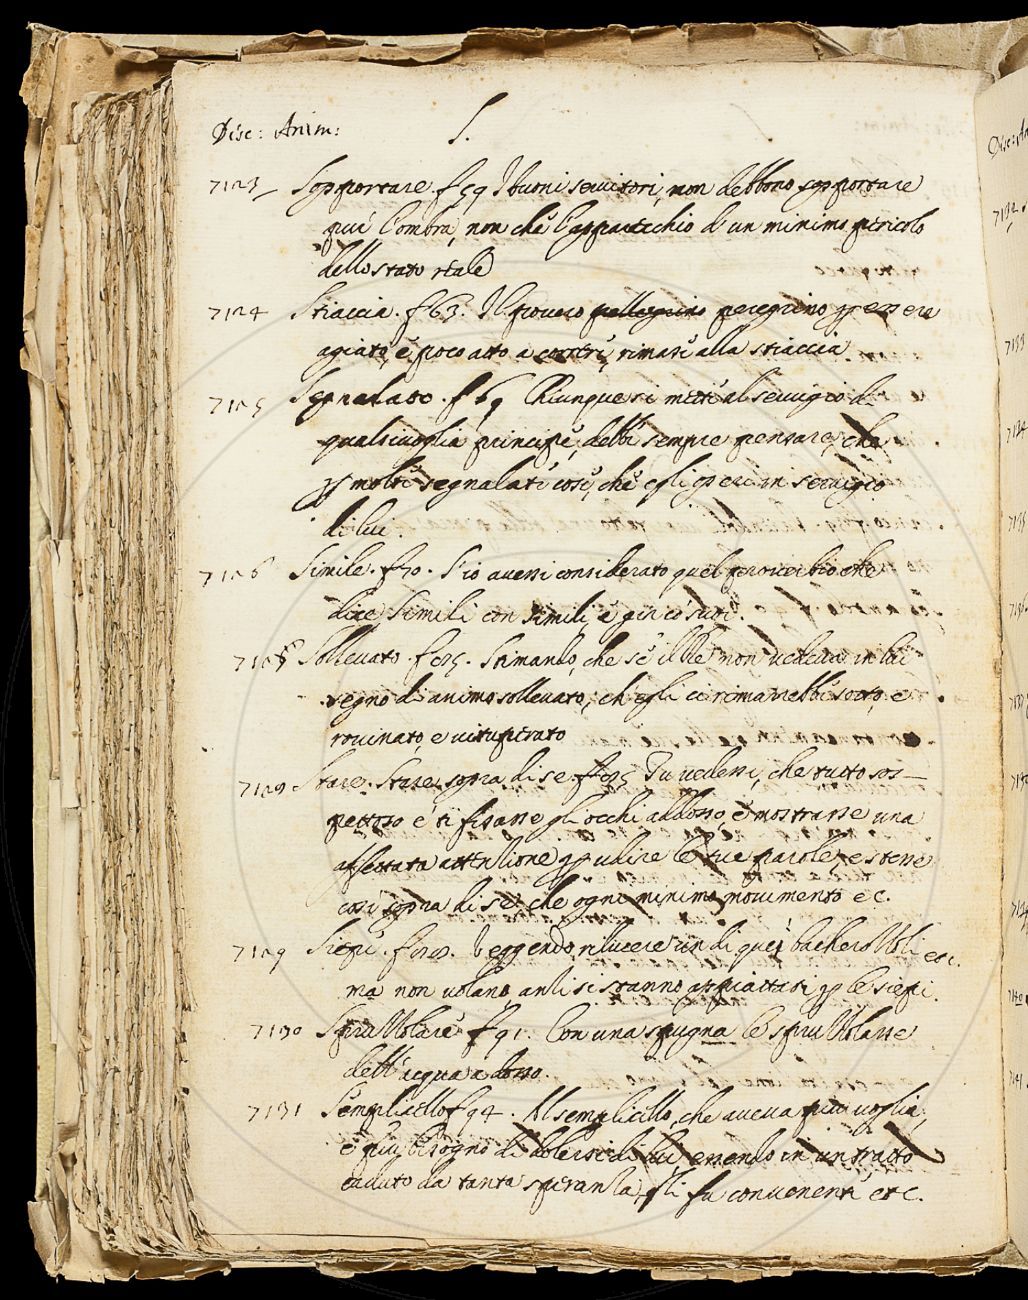 Disc: Anim: S.
7123 Sopportare. f 59 I buoni servitori, non debbono sopportare
pur l'ombra, non che l'apparecchio d'un minimo pericolo
dello stato reale
7124 Stiaccia. f 63. Il povero pellegrino peregrino per essere
agiato, e poco atto a correre, rimase alla stiaccia.
7125 Segnalato. f 69 Chiunque si mette al servigio di
qualsivoglia principe, debbe sempre pensare, che
per molte segnalate cose, che egli operi in servigio
di lui.
7126 Simile. f 70. S'io avessi considerato quel proverbio che
dice Simili con simili, e gir co' suoi.
Sollevato. f 85. Stimando, che se il Re non vedeva in lui
segno di animo sollevato; ch'egli ci rimarrebbe sotto, e
rovinato, e vituperato
Stare. Stare sopra di se. f 85 Tu vedessi, che tutto sos-
pettoso e ti fissasse gli occhi addosso, e mostrasse una
affettata attenzione per udire le tue parole, e stesse
così sopra di se, che ogni minimo movimento ec.
7129 Siepi. Veggendo rilucere un di quei bacherozzoli etc.
ma non volano, anzi si stanno appiattati per le siepi.
7130 Spruzzolare f 91. Con una spugna le spruzzolasse
dell'acqua a dosso.
7131 Semplicello f 94. Al semplicello, che aveva più voglia,
e più bisogno di dolersi di lui, essendo in un tratto
caduto da tanta speranza, gli fu convenente etc.
7132.
7133
7134